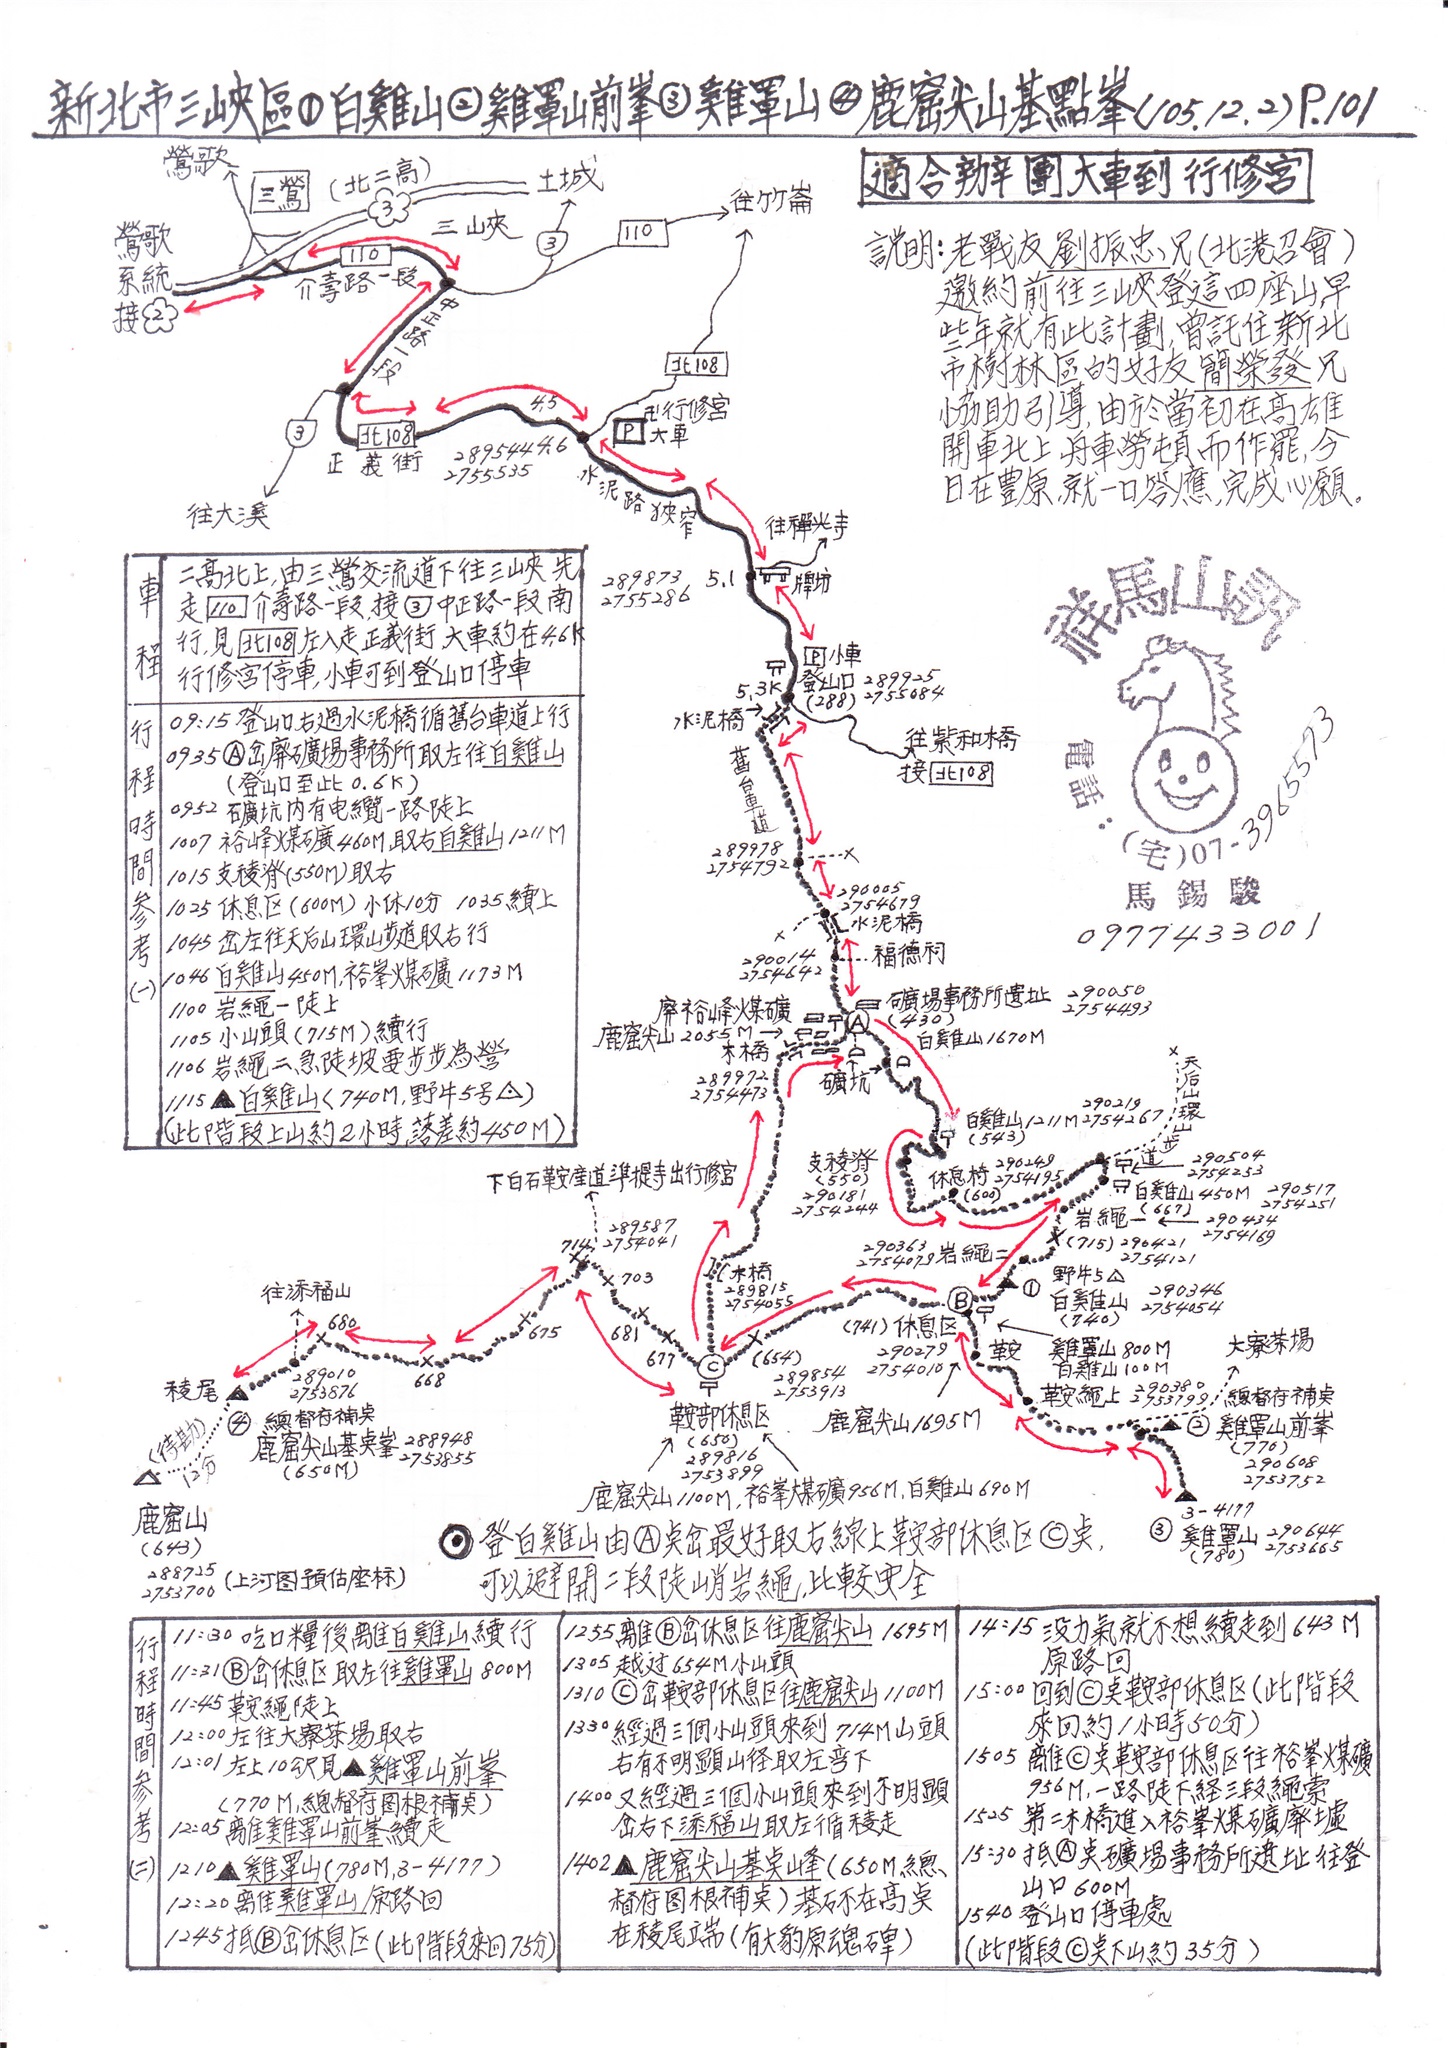 新北市三峽區①白雞山②雞罩山前峯③雞罩山④鹿窟尖山基點峯(105.12.2)P.101
適合辦團大車到行修宮
說明:老戰友劉振忠兄(北港召會)
邀約前往三峽登這四座山,早
些年就有此計劃,曾託住新北
市樹林區的好友簡榮發兄
協助引導,由於當初在高雄
開車北上舟車勞頓而作罷,今
日在豐原,就一口答應,完成心願。
鶯歌
三鶯
(北二高)
3
土城
三峽
往竹崙
110
3
鶯歌
系統
接②
110
介壽路一段
中正路一段
北108
3
往大溪
北108
正義街
4.5
卍行修宮
P
大車
4.6
289544
2755535
水泥路狹窄
往禪光寺
牌坊
5.1
289873
2755286
P小車
登山口
(288)
289925
2755084
5.3K
水泥橋
往紫和橋
接北108
舊台車道
289978
2754792
290005
2754679
水泥橋
福德祠
290014
2754642
廢裕峰煤礦
鹿窟尖山2055M
木橋
289972
2754473
A
礦場事務所遺址
(430)
290050
2754493
白雞山1670M
礦坑
白雞山1211M
(543)
290219
2754267
天后山環山步道
支稜脊
(550)
290181
2754244
休息椅
(600)
290249
2754195
290504
2754253
白雞山450M
(667)
290517
2754251
岩繩一
290434
2754169
(715)
290421
2754121
岩繩二
290363
2754079
①
野牛5△
白雞山
(740)
290346
2754054
B
(741)休息区
290279
2754010
鞍
雞罩山800M
白雞山100M
大寮茶場
鞍繩上
290380
2753799
總都府補点
②雞罩山前峯
(770)
290608
2753752
鹿窟尖山1695M
3-4177
③雞罩山
(780)
290644
2753665
下白石鞍產道準提寺出行修宮
714
289587
2754041
703
681
677
675
668
680
往添福山
木橋
289815
2754055
(654)
289854
2753913
C
鞍部休息区
(650)
289816
2753899
鹿窟尖山1100M,裕峯煤礦956M,白雞山690M
稜尾
289010
2753876
④
總都府補点
鹿窟尖山基点峯
(650M)
288948
2753855
(待勘)
12分
鹿窟山
(643)
288725
2753700
(上河图預估座标)
⊙登白雞山由Ⓐ点岔最好取右線上鞍部休息区Ⓒ点,
可以避開二段陡峭岩繩,比較安全
祥馬山訊
電話:(宅)07-3965573
馬錫駿
0977433001
車程
二高北上,由三鶯交流道下往三峽先
走110介壽路一段,接③中正路一段南
行,見北108左入走正義街,大車約在4.6K
行修宮停車,小車可到登山口停車
行程時間參考(一)
09:15登山口右過水泥橋循舊台車道上行
0935Ⓐ岔廢礦場事務所取左往白雞山
(登山口至此0.6K)
0952礦坑内有电纜一路陡上
1007裕峰煤礦460M,取右白雞山1211M
1015支稜脊(550M)取右
1025休息区(600M)小休10分 1035續上
1045岔左往天后山環山步道取右行
1046白雞山450M,裕峯煤礦1173M
1100岩繩一陡上
1105小山頭(715M)續行
1106岩繩二急陡坡要步步為營
1115▲白雞山(740M,野牛5号△)
(此階段上山約2小時,落差約450M)
行程時間參考(二)
11:30吃口糧後離白雞山續行
11:31Ⓑ岔休息区取左往雞罩山800M
11:45鞍繩陡上
12:00左往大寮茶場取右
12:01左上10公尺見▲雞罩山前峯
(770M,總督府图根補点)
12:05離雞罩山前峯續走
1210▲雞罩山(780M,3-4177)
12:20離雞罩山原路回
1245抵Ⓑ岔休息区(此階段來回75分)
1255離Ⓑ岔休息区往鹿窟尖山1695M
1305越过654M小山頭
1310Ⓒ岔鞍部休息区往鹿窟尖山1100M
1330經過三個小山頭來到714M山頭
右有不明顯山径取左弯下
1400又經過三個小山頭來到不明顯
岔右下添福山取左循稜走
1402▲鹿窟尖山基点峰(650M,總
督府图根補点)基石不在高点
在稜尾端(有大豹原魂碑)
14:15没力氣就不想續走到643M
原路回
15:00回到Ⓒ点鞍部休息区(此階段
來回約1小時50分)
1505離Ⓒ点鞍部休息区往裕峯煤礦
956M,一路陡下経三段繩索
1525第二木橋進入裕峯煤礦廢墟
15:30抵Ⓐ点礦場事務所遺址往登
山口600M
1540登山口停車處
(此階段Ⓒ点下山約35分)